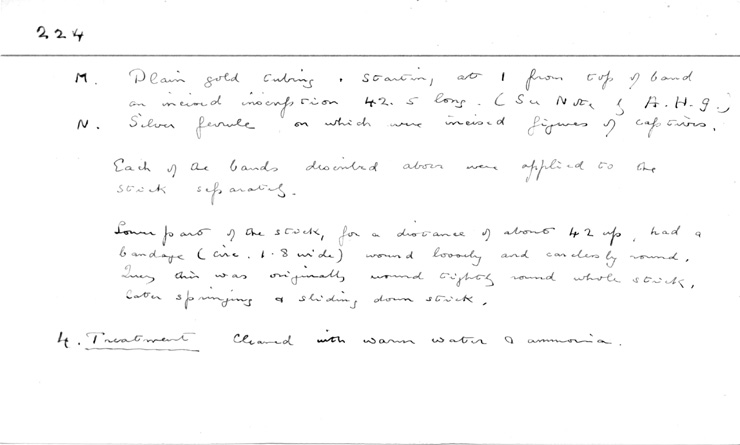 224
M. Plain gold tubing. Starting, at 1 from top of band
an incised inscription 42.5 long. (See Note by A.H.G.)
N. Silver ferrule on which were incised figures of captives.
Each of the bands described above were applied to the
stick separately.
Lower part of the stick, for a distance of about 42 up, had a
bandage (circ. 1.8 wide) wound loosely and carelessly round.
Query this was originally wound tightly round whole stick,
later springing & sliding down stick.
4. Treatment Cleaned with warm water & ammonia.